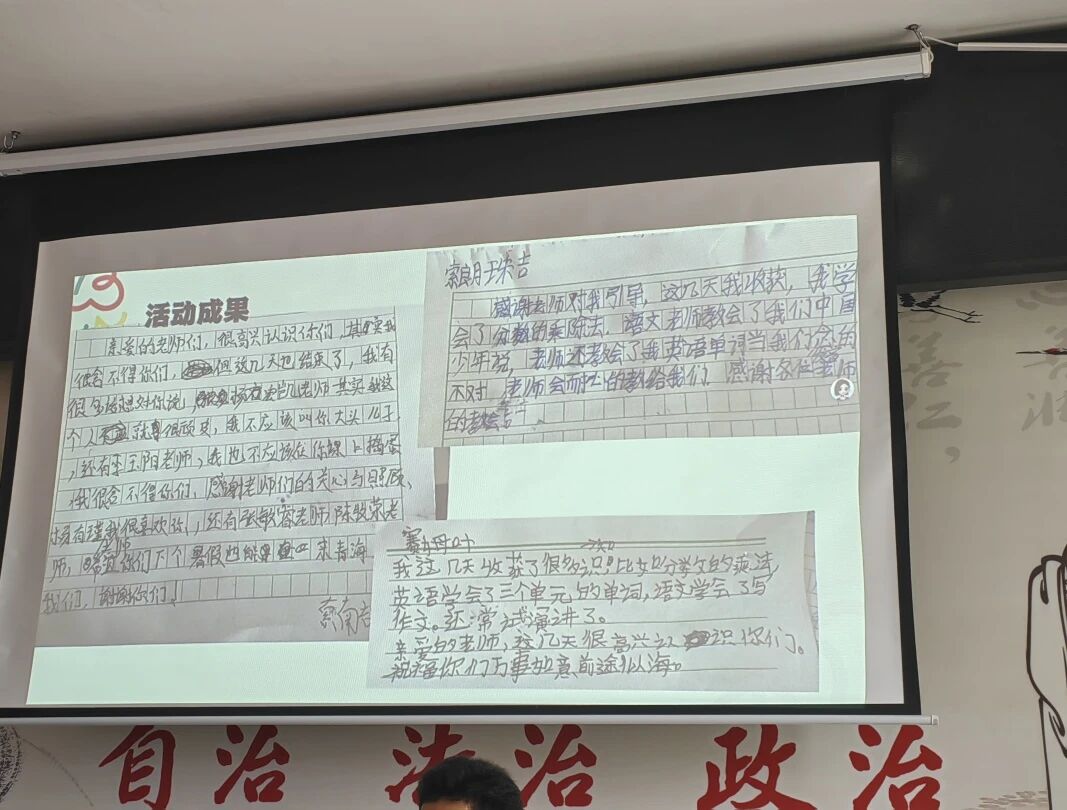 活动成果
亲爱的老师们，很高兴认识你们，其实我
很舍不得你们，但这几天也结束了，我有
很多话想对你说，老师其实我这
个人就是很顽皮，我不应该叫你大头儿子
，还有王阳老师，我也不应该在你课上捣蛋
，我很舍不得你们，感谢老师们的关心与照顾，
我很喜欢你，还有张敏容老师，陈牧荣老
师，你们下个暑假也能来青海
我们，谢谢你们。
索南吉
索朗珠吉
感谢老师对我引导，这几天我收获，我学
会了分数的乘除法，语文老师教会了我们中国
少年说，老师还教会了我英语单词当我们念的
不对，老师会耐心的教给我们，感谢各位老师
的教会
我这几天收获了很多知识比如分数的乘法，
英语学会了三个单元的单词，语文学会了写
作文。还尝试演讲了。
亲爱的老师，这几天很高兴认识你们。
祝福你们万事如意前途似海。
自治 法治 政治
善
仁，